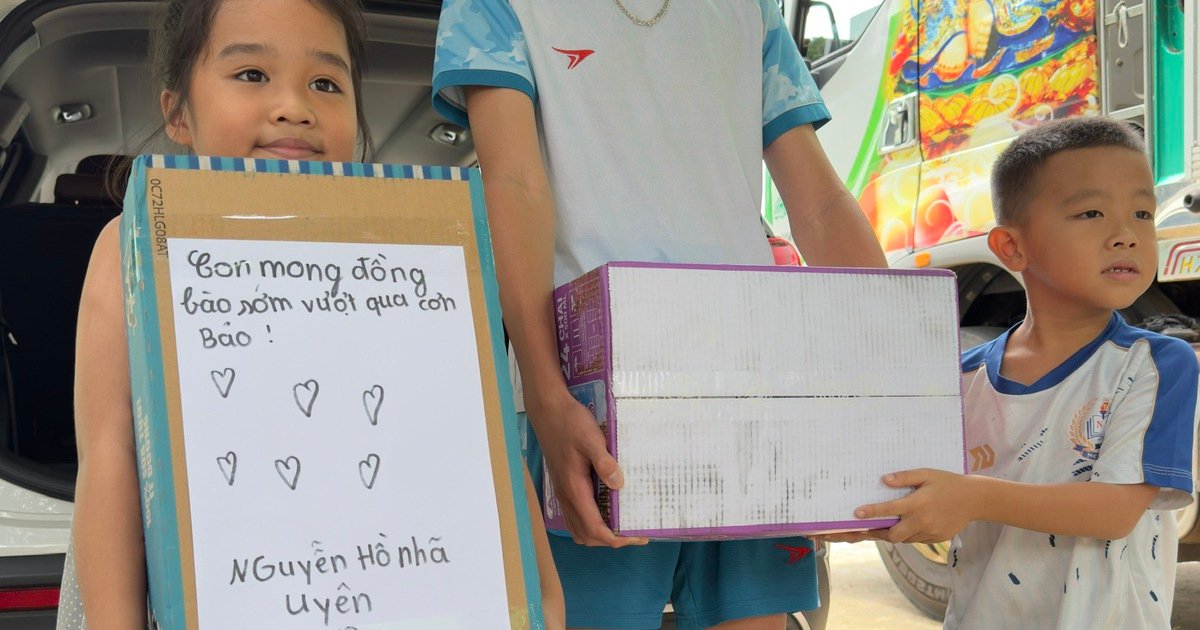 0C72HLG08AT
Con mong đồng
bào sớm vượt qua cơn
Bảo !
Nguyễn Hồ nhã
Uyên
24 CHAI